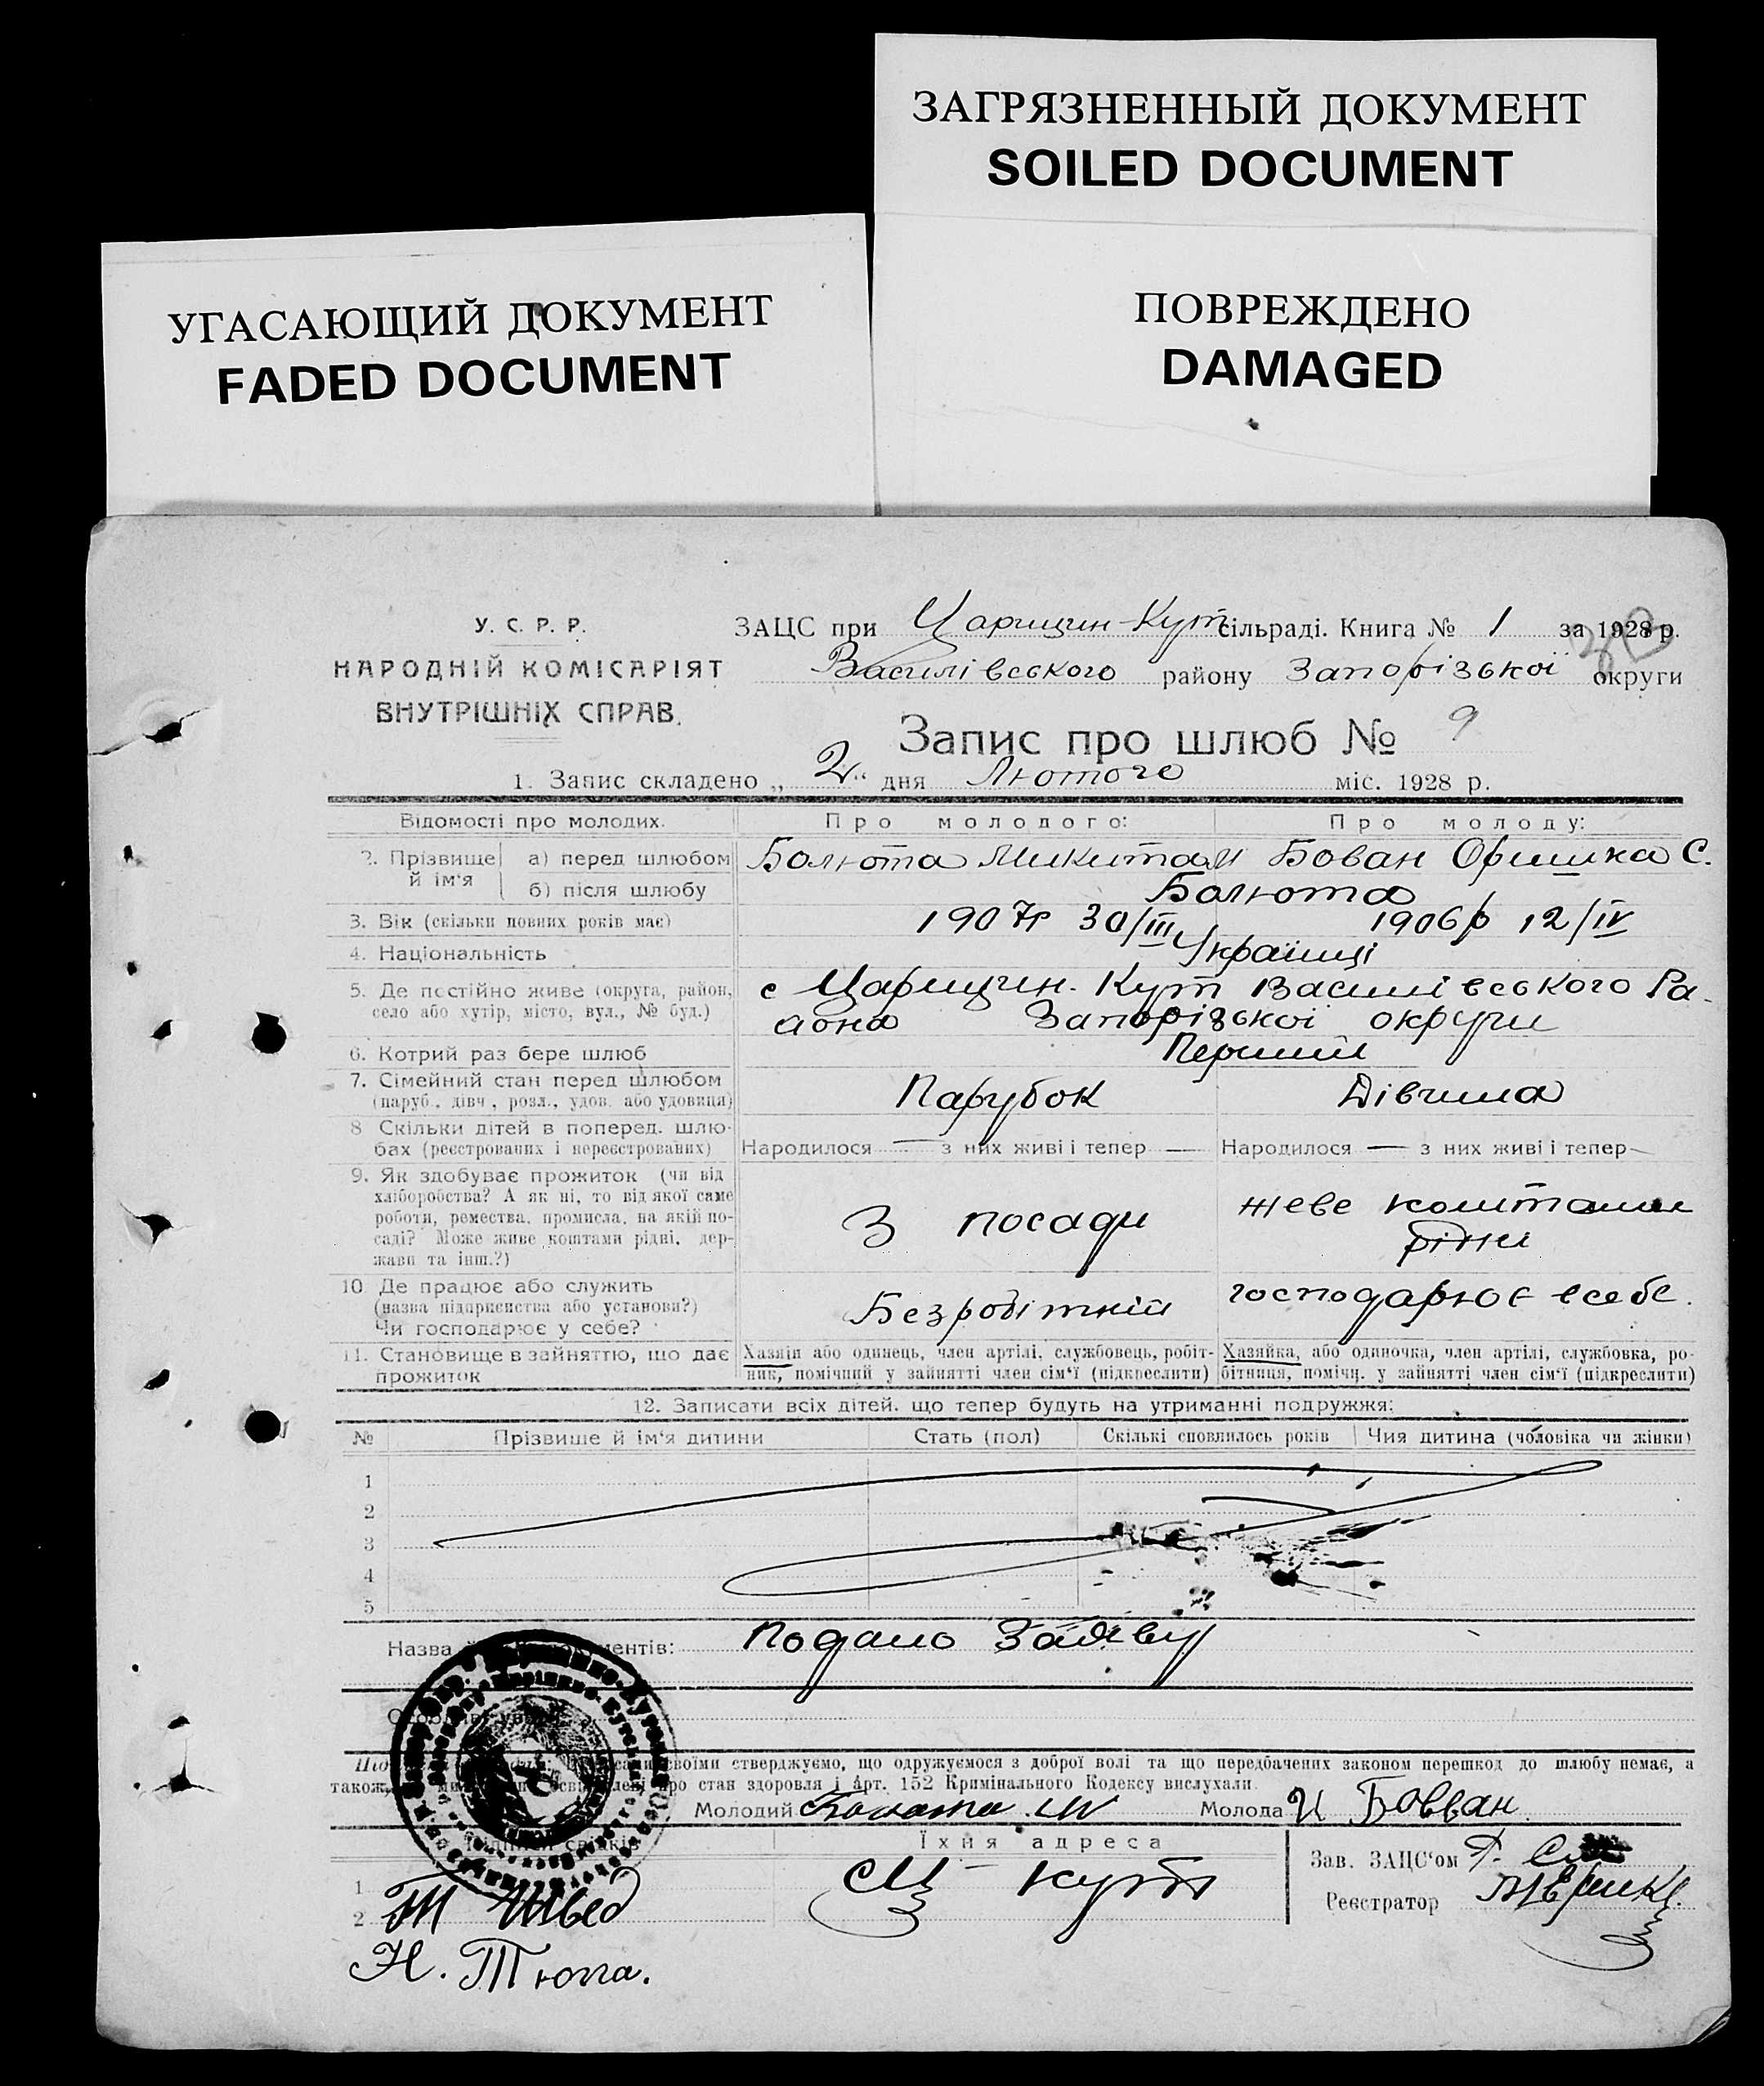 ЗАГРЯЗНЕННЫЙ ДОКУМЕНТ
SOILED DOCUMENT
УГАСАЮЩИЙ ДОКУМЕНТ
FADED DOCUMENT
ПОВРЕЖДЕНО
DAMAGED
У. С. Р. Р.
НАРОДНІЙ КОМІСАРІЯТ
ВНУТРІШНІХ СПРАВ.
ЗАЦС при Царицин-Кут сільраді. Книга № 1 за 1928 р.
Василівського району Запорізької округи
Запис про шлюб № 9
1. Запис складено „ 2 “ дня Лютого міс. 1928 р.
Відомості про молодих. Про молодого: Про молоду:
2. Прізвище й ім‘я а) перед шлюбом Балюта Микита Бован Оришка С.
б) після шлюбу Балюта
3. Вік (скільки повних років має) 1907р 30/III 1906р 12/IV
4. Національність Українці
5. Де постійно живе (округа, район, село або хутір, місто, вул., № буд.) с Царицин. Кут Василівського Ра-
аона Запорізької округи
6. Котрий раз бере шлюб Перший
7. Сімейний стан перед шлюбом (паруб., дівч., розл., удов. або удовиця) Парубок Дівчина
8 Скільки дітей в поперед. шлю-
бах (реєстрованих і нереєстрованих) Народилося — з них живі і тепер — Народилося — з них живі і тепер —
9. Як здобуває прожиток (чи від
хліборобства? А як ні, то від якої саме
роботи, ремества, промисла, на якій по-
саді? Може живе коштами рідні, дер-
жави та інш.?)
З посади
живе коштами
рідні
10. Де працює або служить
(назва підприємства або установи?)
Чи господарює у себе?
Безробітний
господарює всебе.
11. Становище в зайняттю, що дає
прожиток
Хазяїн або одинець, член артілі, службовець, робіт-
ник, помічний у зайнятті член сім‘ї (підкреслити)
Хазяйка, або одиночка, член артілі, службовка, ро-
бітниця, помічн. у зайнятті член сім‘ї (підкреслити)
12. Записати всіх дітей. що тепер будуть на утриманні подружжя:
№ Прізвище й ім‘я дитини Стать (пол) Скількі сповнилось років Чия дитина (чоловіка чи жінки)
1
2
3
4
5
Назва документів: Подано Заяву
своїми стверджуємо, що одружуємося з доброї волі та що передбачених законом перешкод до шлюбу немає, а
також, про стан здоровля і Арт. 152 Кримінального Кодексу вислухали.
Молодий Молода Бовван
Їхня адреса
Ц-Кут
Зав. ЗАЦС‘ом
Реєстратор
1
2 Т Швед
Н. Тюпа.